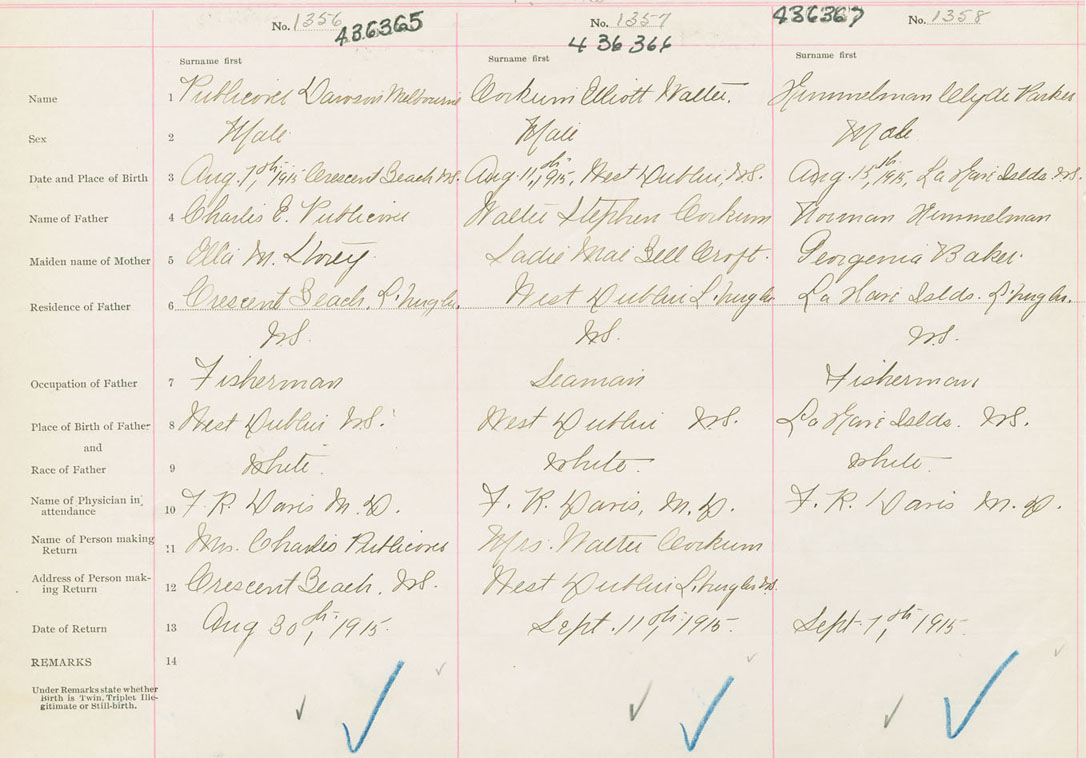 No. 1356 436365 No. 1357 436366 436367 No. 1358
Surname first Surname first Surname first
Name 1 Publicover Dawson Melbourne Corkum Elliott Walter. Himmelman Clyde Parker
Sex 2 Male Male Male
Date and Place of Birth 3 Aug. 7th, 1915 Crescent Beach N.S. Aug. 11th, 1915, West Dublin, N.S. Aug. 15th, 1915, La Have Islds. N.S.
Name of Father 4 Charlis E. Publicover Walter Stephen Corkum Norman Himmelman
Maiden name of Mother 5 Ella M. Sadie Mae Bell Croft. Georgenia Baker.
Residence of Father 6 Crescent Beach, L'burg Co. West Dublin L'burg Co. La Have Islds. L'burg Co.
N.S. N.S. N.S.
Occupation of Father 7 Fisherman Seaman Fisherman
Place of Birth of Father 8 West Dublin N.S. West Dublin N.S. La Have Islds. N.S.
and
Race of Father 9 White. White. White.
Name of Physician in attendance 10 F. R. Davis M.D. F. R. Davis, M.D. F. R. Davis M.D.
Name of Person making Return 11 Mrs. Charlis Publicover Mrs. Walter Corkum
Address of Person mak-
ing Return 12 Crescent Beach, N.S. West Dublin L'burg Co. N.S.
Date of Return 13 Aug 30th, 1915. Sept. 11th, 1915. Sept. 7th, 1915.
REMARKS 14
Under Remarks state whether
Birth is Twin, Triplet, Ille-
gitimate or Still-birth.